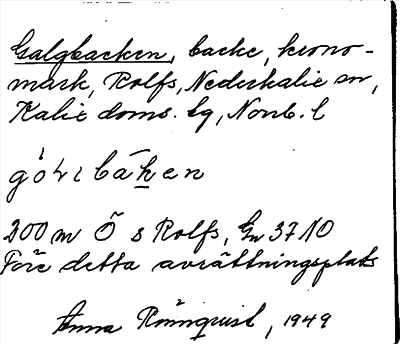 Galgbacken, backe, krono-
mark, Rolfs, Nederkalix sn,
Kalix doms. lg, Norrb. l
200 m Ö s Rolfs, Gn 37 NO
Före detta avrättningsplats
Anna Rönnquist, 1949